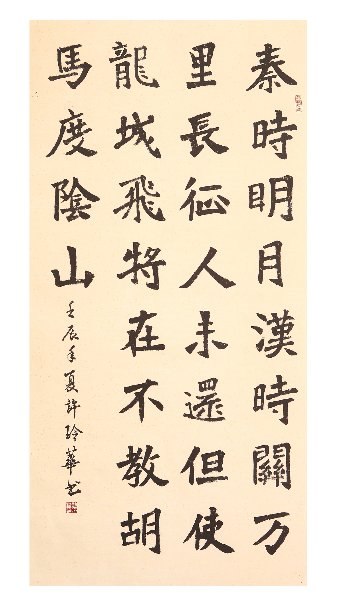 秦時明月漢時關万
里長征人未還但使
龍城飛将在不教胡
馬度陰山
壬辰年夏許玲華书